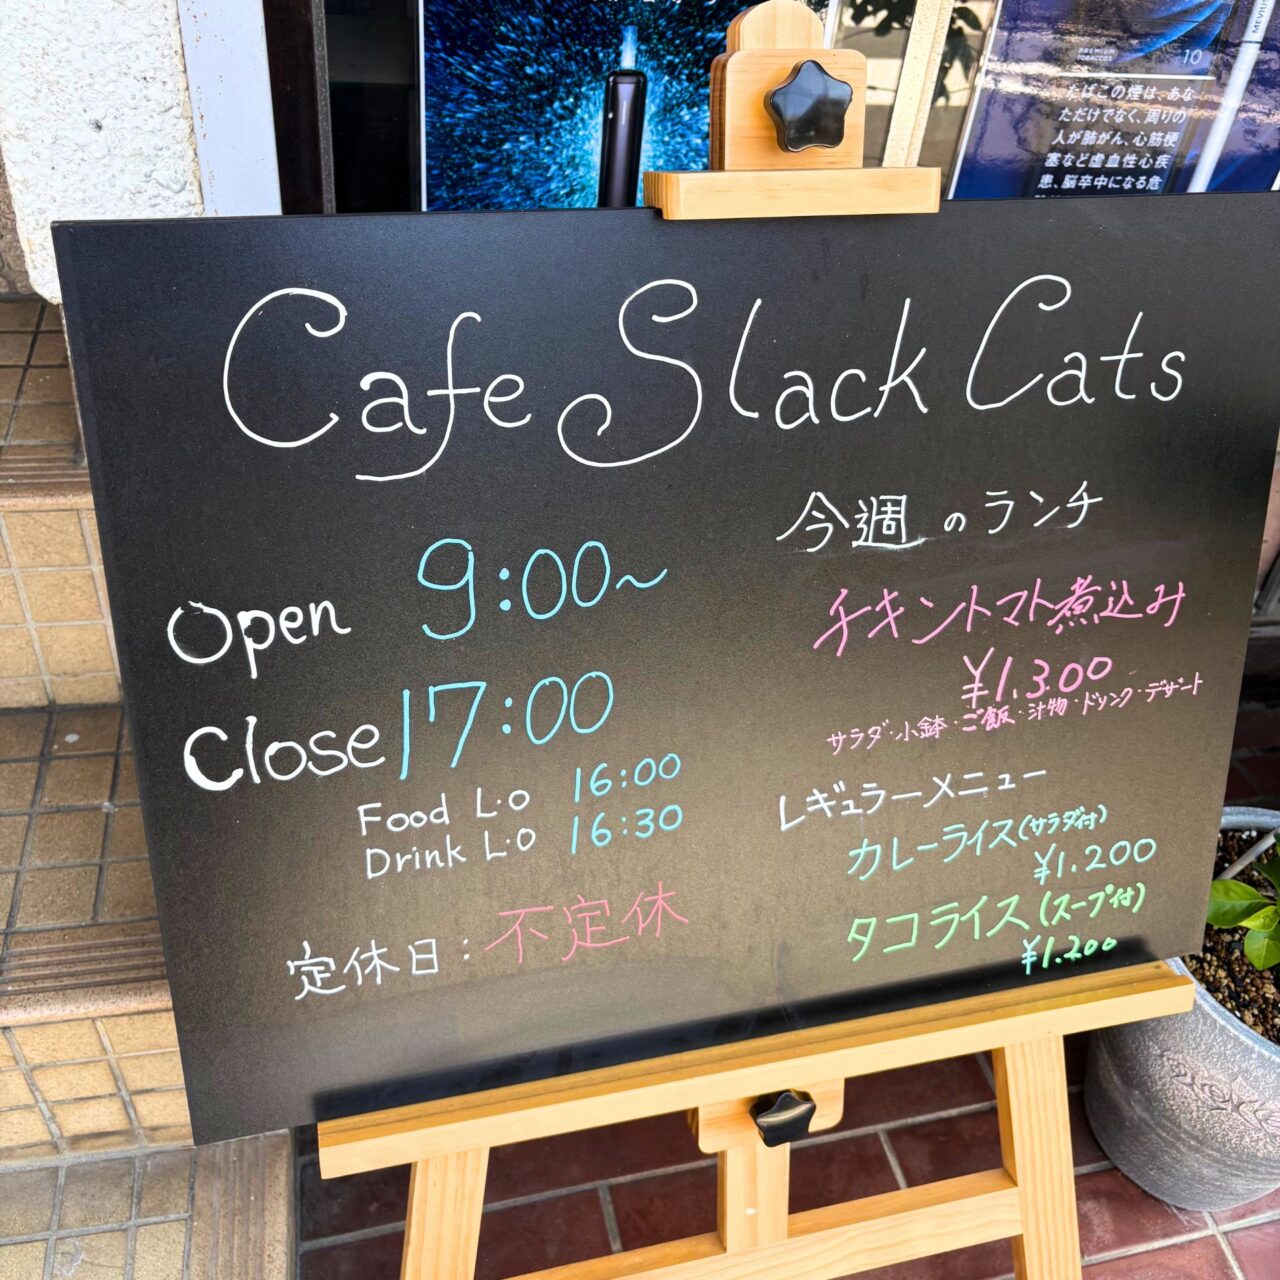 PREMIUM
TOBACCOS
10
MEVIUS
たばこの煙は、あな
ただけでなく、周りの
人が肺がん、心筋梗
塞など虚血性心疾
患、脳卒中になる危
Cafe Slack Cats
Open 9:00~
Close 17:00
Food L.O 16:00
Drink L.O 16:30
定休日:不定休
今週のランチ
チキントマト煮込み
¥1.300
サラダ・小鉢・ご飯・汁物・ドリンク・デザート
レギュラーメニュー
カレーライス(サラダ付)
¥1.200
タコライス(スープ付)
¥1.200